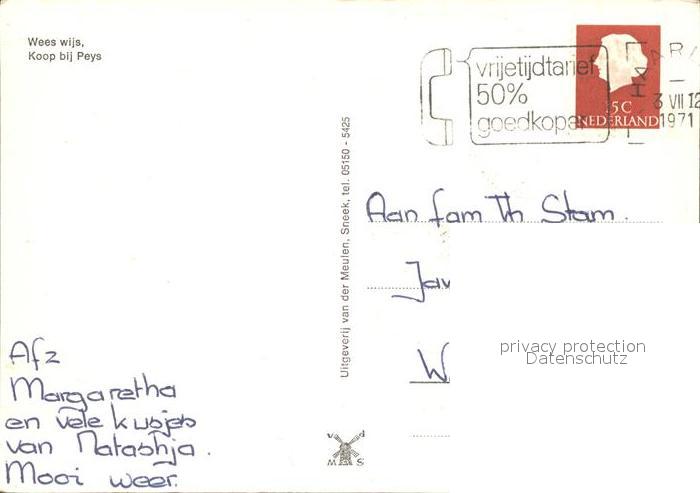 Wees wijs,
Koop bij Peys
vrijetijdtarief
50%
goedkoper
HAAR
3 VII 12
1971
25 C
NEDERLAND
Uitgeverij van der Meulen, Sneek, tel. 05150 - 5425
Aan fam Th Stam.
Jav
W
privacy protection
Datenschutz
Afz
Margaretha
en vele kusjes
van Natashja.
Mooi weer.
v d
M S